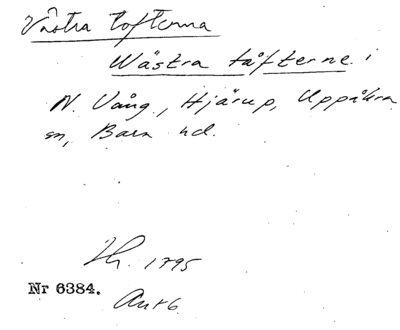 Västra tofterna
Wästra tåfterne i
N. Vång, Hjärup, Uppåkra
sn, Bara hd.
Sk. 1795
Nr 6384.
Ant 6.